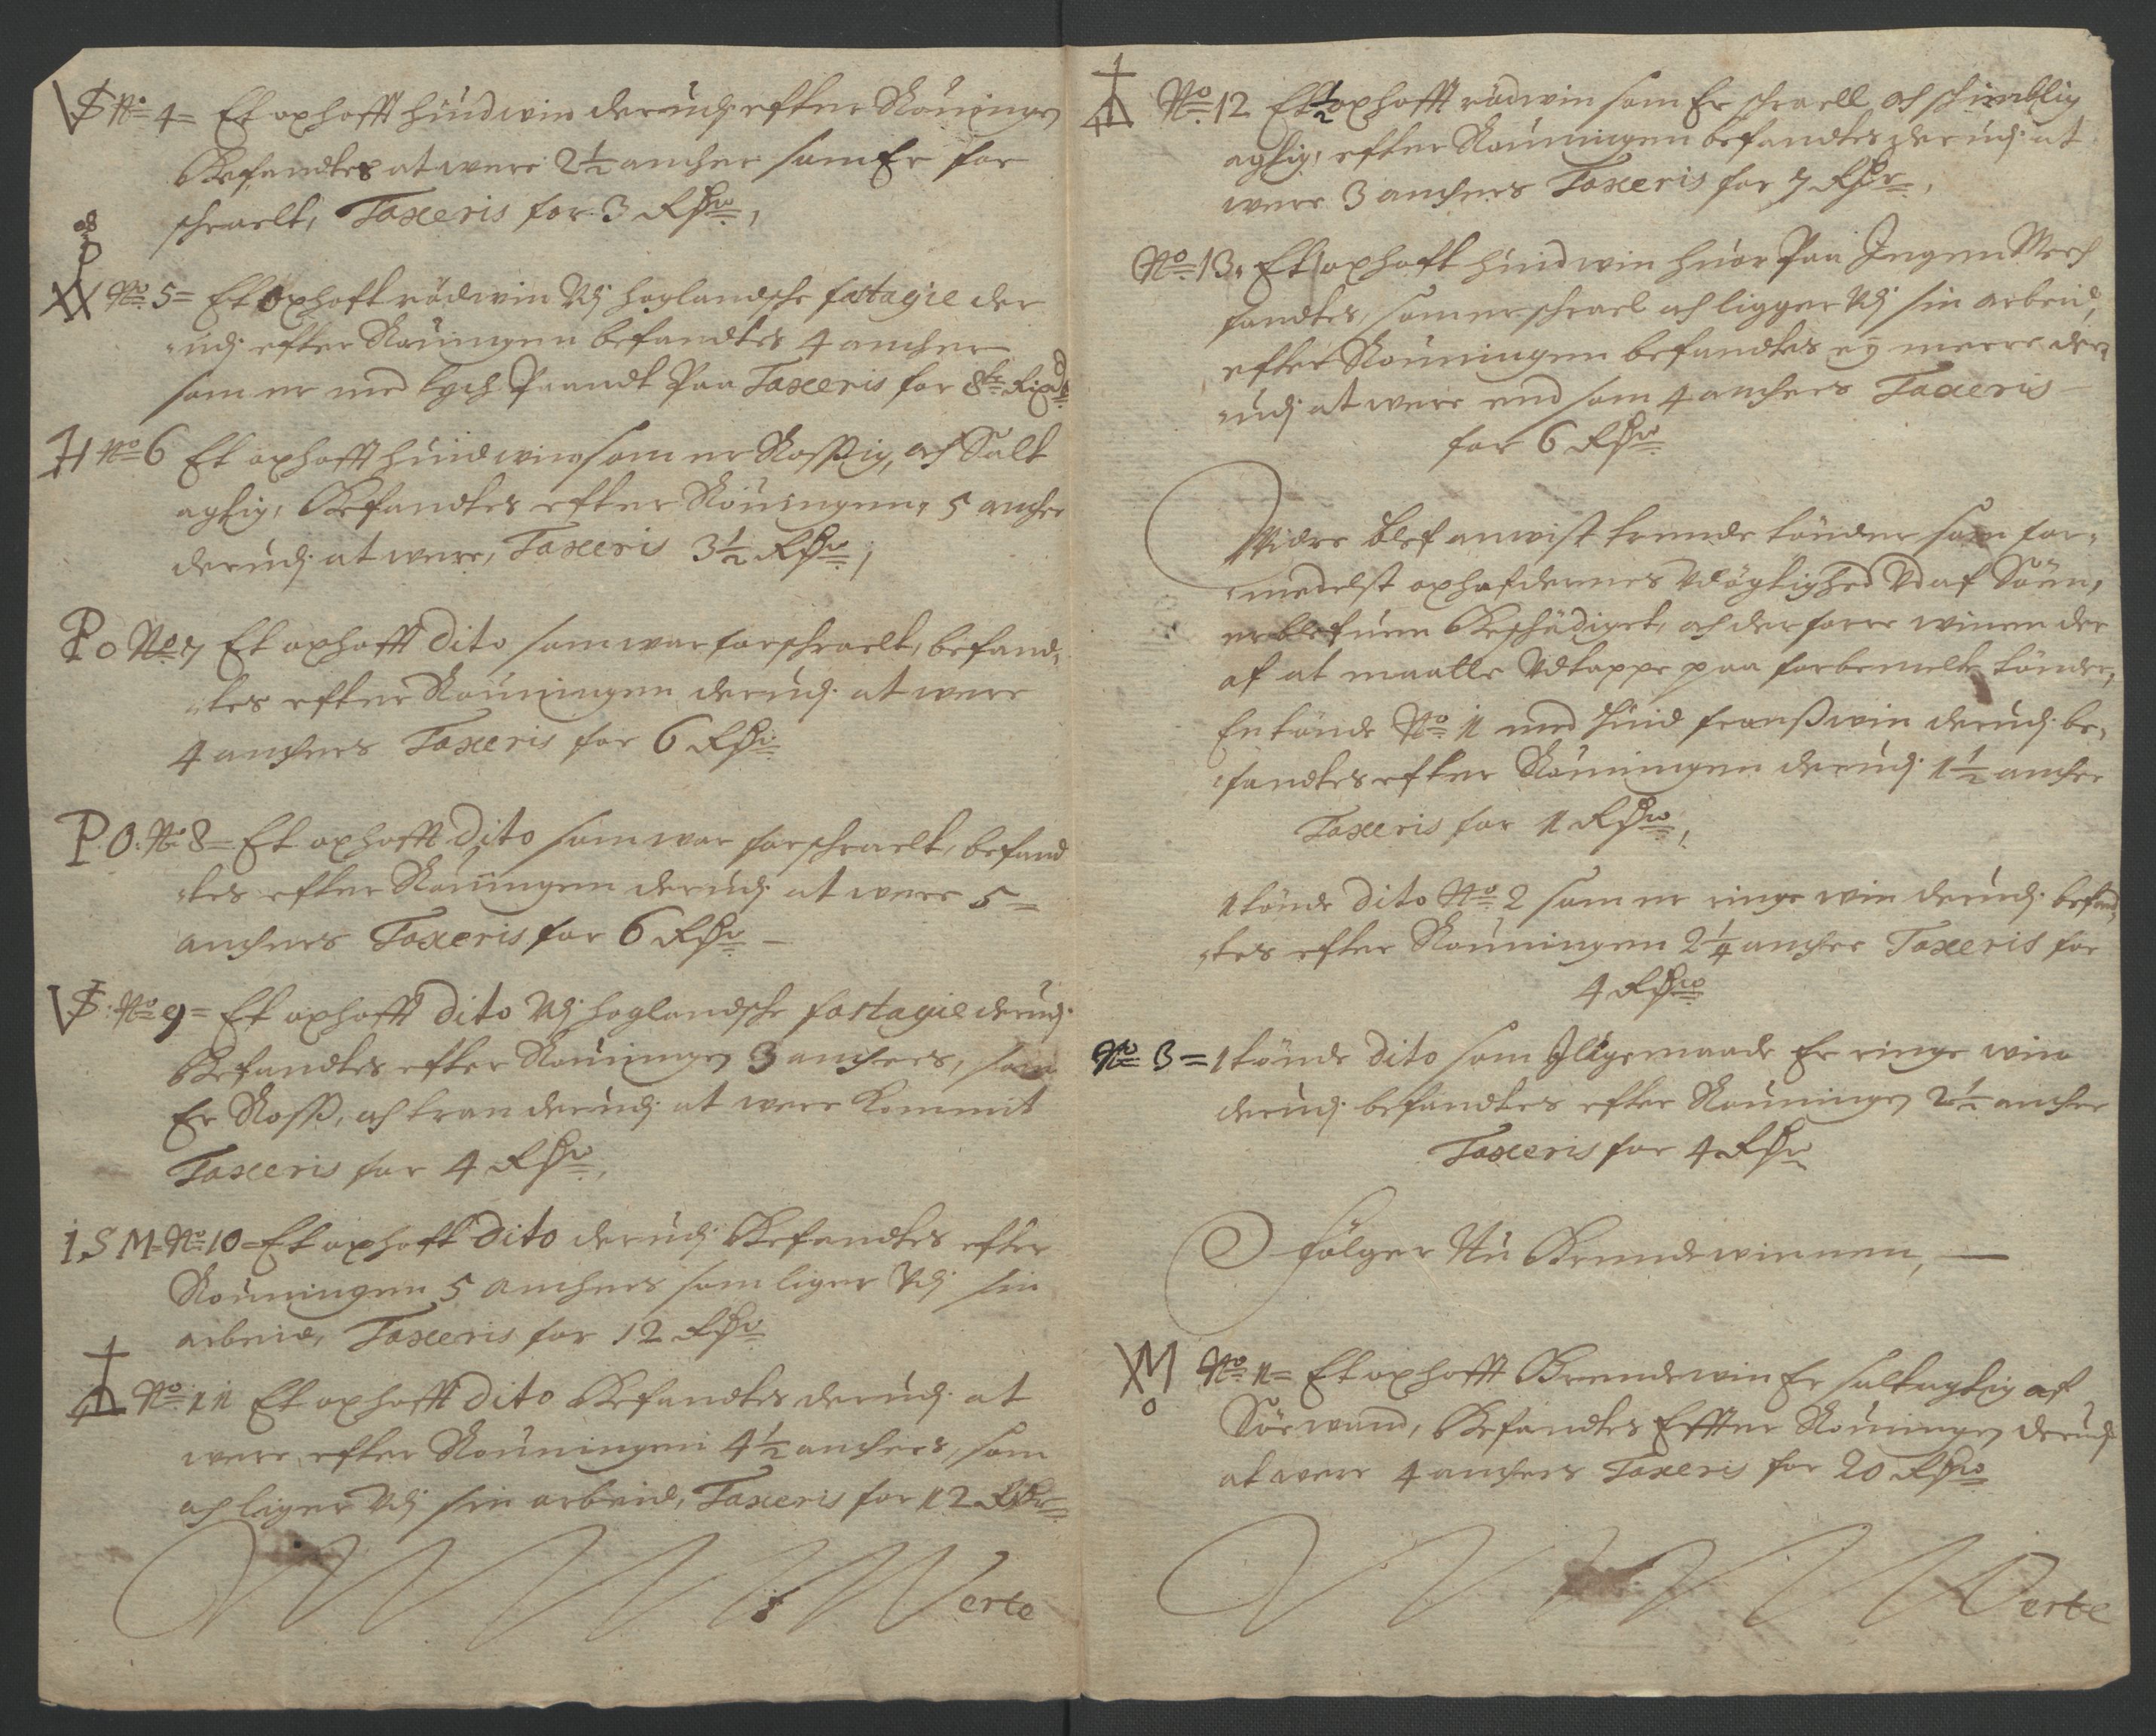 VS No 4= Et oxhofft huidwin derudj efter Rouningen
Befandtes at were 2½ ancher som Er for
schraelt, Taxeris for 3 Rdr,
No 5= Et Oxhoft rödwin Udj hoglandsche fastagie der
udj efter Rouningen befandtes 4 ancher
som er med tych Paandt Paa Taxeris for 8te Rixdr
H No 6 Et oxhofft huidwin som er Rossig, och Salt
agtig, Befandtes efter Rouingen, 5 ancher
derudj at were, Taxeris 3½ Rdr,
Po No 7 Et oxhofft Dito som war forschraelt, befand,
tes efter Rouningen derudj at were
4 anchers Taxeris for 6 Rdr
P O. No 8= Et oxhofft Dito som war forschraelt, befand
tes efter Rouningen derudj at were 5=
anchers Taxeris for 6 Rdr
VS: No 9= Et oxhofft Dito Udj hoglandsche fastagie derudj
Befandtes efter Rouningen 3 anchers, som
Er Ross, och tran derudj at were Kommit
Taxeris for 4 Rdr,
I S M= No 10= Et oxhoft Dito derudj Befandtes efter
Rouningen 5 anchers som liger Udj sin
arbeid, Taxeris for 12 Rdr
No 11 Et oxhofft Dito Befandtes derudj at
were efter Rouningen 4½ anchers, som
och liger Udj sin arbeid, Taxeris for 12 Rdr
Verte
No 12 Et ½ oxhofft rödwin som Er schraell och schimblig
agtig, efter Rouningen befandtes derudj at
were 3 anchers Taxeris for 7 Rdr,
No 13, Et oxhoft huidwin huor Paa Ingen Merch
fandtes, som er schrael och ligger Udj sin arbeid,
efter Rouningen befandtes ej meere der
udj at were end som 4 anchers Taxeris
for 6 Rdr
Widre blef anwist trende tönder som for,
medelst oxhofdernes Udögtighed Udaf Söen,
er blefuen Beschadiget, och derforre winen der
af at maatte Udtappe paa forbemelte tönder,
En tönde No 1 med huid fransswin derudj be,
fandtes efter Rouningen derudj 1½ ancher
Taxeris for 11 Rdr,
1 tönde Dito No 2 som er ringe win derudj befand,
tes efter Rouningen 2¼ ancher Taxeris for
4 Rdr
No 3= 1 tönde Dito som Iligemaade Er ringe win
derudj befandtes efter Rouningen 2½ ancher
Taxeris for 4 Rdr
Fölger Nu Brendewinen,
XM o No 1= Et oxhofft Brendewin Er saltagtig af
Söewand, Befandtes Effter Rouningen derudj
at were 4 anchers Taxeris for 20 Rdr
Verte